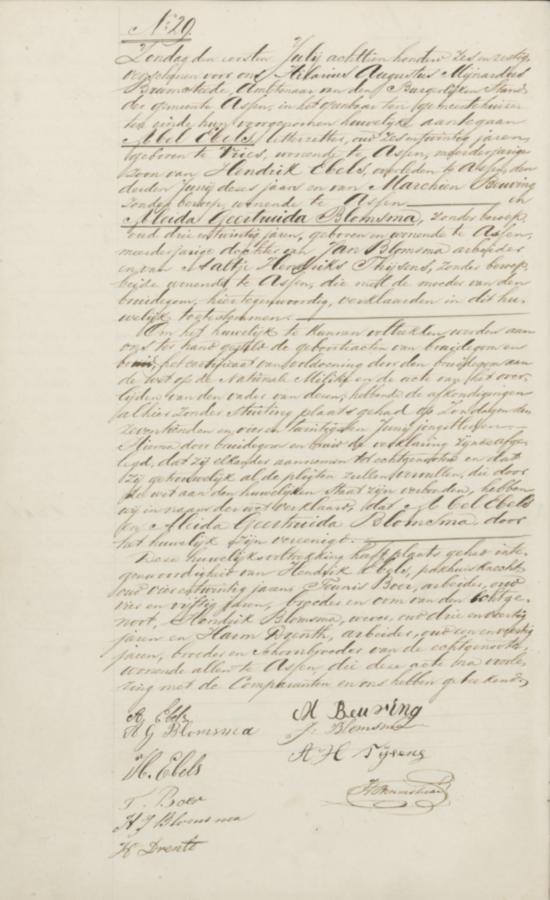 No 29.
Zondag den eersten Julij achttien honderd zes en zestig,
verschenen voor ons Hilarius Augustus Mijnardus
Brumstede, Ambtenaar van den Burgerlijken Stand
der gemeente Assen, in het openbaar ten gemeentehuize
ten einde hun voorgenomen huwelijk aantegaan
Abel Ebels, letterzetter, oud zes en twintig jaren,
geboren te Vries, wonende te Assen, meerderjarige
zoon van Hendrik Ebels, overleden te Assen den
derden Junij dezes jaars en van Marchien Beuving
zonder beroep, wonende te Assen en
Aleida Geertruida Blomsma, zonder beroep,
oud drie en twintig jaren, geboren en wonende te Assen,
meerderjarige dochter van Jan Blomsma arbeider
en van Aaltje Hendriks Thijsens, zonder beroep,
beide wonende te Assen, die met de moeder van den
bruidegom, hier tegenwoordig, verklaarden in dit hu-
welijk toetestemmen.
Om het huwelijk te kunnen voltrekken, werden aan
ons ter hand gesteld de geboorteacten van bruidegom en
bruid, het certificaat van voldoening door den bruidegom aan
de wet op de Nationale Militie en de acte van het over-
lijden van den vader van dezen; hebbende de afkondigingen
alhier zonder stuiting plaats gehad op Zondagen den
zeventienden en vier en twintigsten Junij jongstleden.
Hierna door bruidegom en bruid de verklaring zijnde afge-
legd, dat zij elkander aannemen tot echtgenooten en dat
zij getrouwelijk al de pligten zullen vervullen, die door
de wet aan den huwelijken staat zijn verbonden, hebben
wij in naam der wet verklaard, dat Abel Ebels
en Aleida Geertruida Blomsma door
het huwelijk zijn vereenigd.
Deze huwelijksvoltrekking heeft plaats gehad in te-
genwoordigheid van Hendrik Ebels, pakhuisknecht
oud vier en twintig jaren, Teunis Boer, arbeider, oud
vier en vijftig jaren, broeder en oom van den echtge-
noot, Hendrik Blomsma, wever, oud drie en veertig
jaren en Harm Drenth, arbeider, oud een en veertig
jaren, broeder en schoonbroeder van de echtgenoote,
wonende allen te Assen, die deze acte na voorle-
zing met de Comparanten en ons hebben geteekend.
A Ebels
A G Blomsma
M Beuving
J. Blomsma
A H Tijsens
H. Ebels
T. Boer
H J Blomsma
H Drente